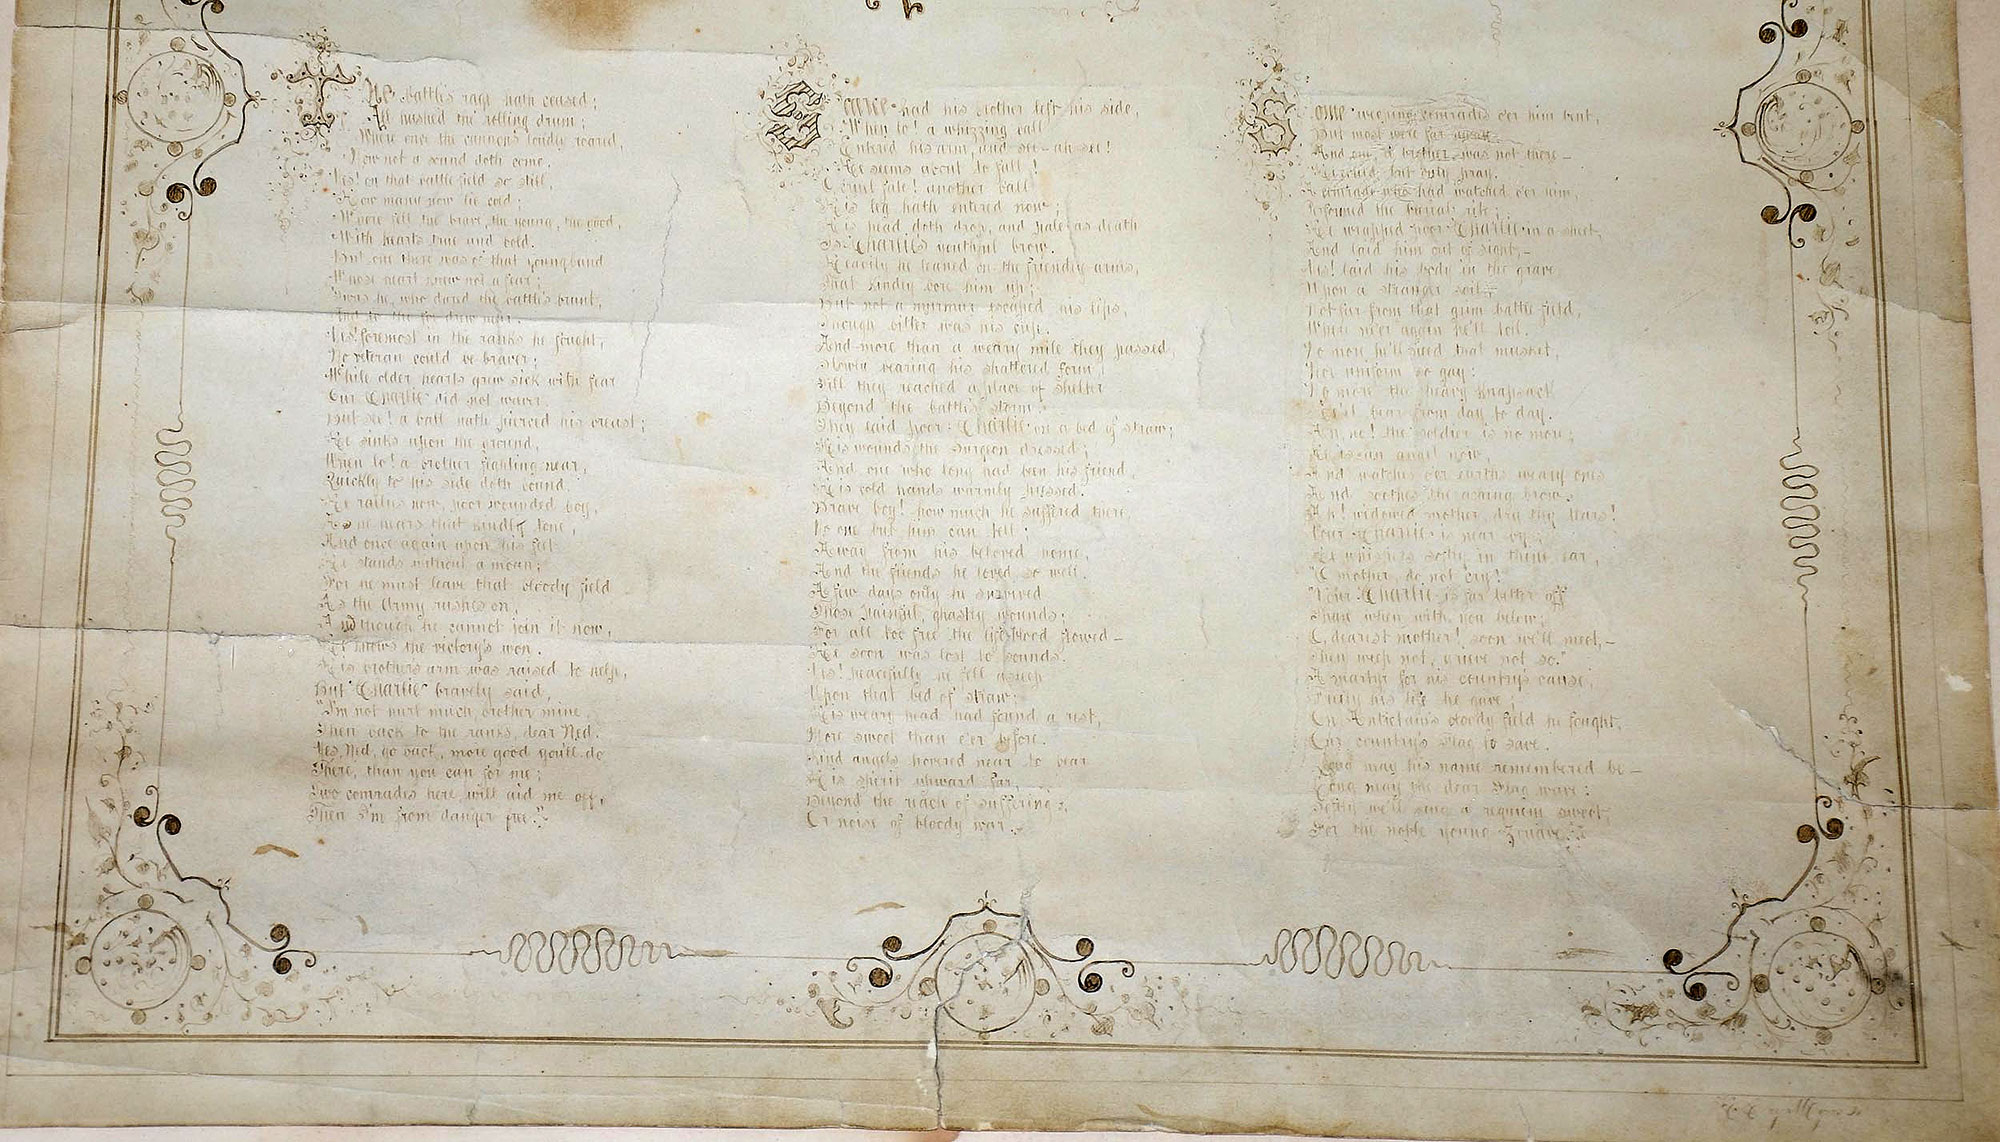 The battle's rage hath ceased;
All hushed the rolling drum;
Where once the cannons loudly roared,
Now not a sound doth come,
Yes! on that battle field so still,
How many now lie cold;
Where fell the brave, the young, the good,
With hearts true and bold.
But one there was of that young band
Whose heart knew not a fear;
'Twas he, who dared the battle's brunt,
And to the foe drew near.
Yes! foremost in the ranks he fought,
No veteran could be braver;
While older hearts grew sick with fear
Our Charlie did not waver.
But see! a ball hath pierced his breast;
He sinks upon the ground,
When lo! a brother fighting near,
Quickly to his side doth bound.
He rallies now, poor wounded boy,
As he hears that kindly tone,
And once again upon his feet
He stands without a moan;
For he must leave that bloody field
As the Army rushes on,
And though he cannot join it now,
He knows the victory's won.
His brother's arm was raised to help,
But "Charlie" bravely said,
"I'm not hurt much, brother mine,
Then back to the ranks, dear Ned.
Yes, Ned, go back, more good you'll do
There, than you can for me;
Two comrades here will aid me off,
Then I'm from danger free."
Scarce had his brother left his side,
When lo! a whizzing ball
Entered his arm, and see - ah see!
He seems about to fall!
Cruel fate! another ball
His leg hath entered now;
His head doth drop, and pale as death
Is Charlie's youthful brow.
Heavily he leaned on the friendly arms,
That kindly bore him up;
But not a murmur escaped his lips,
Though bitter was his cup.
And more than a weary mile they passed,
Slowly bearing his shattered form,
Till they reached a place of shelter
Beyond the battle's storm.
They laid poor Charlie on a bed of straw;
His wounds the Surgeon dressed;
And one who long had been his friend,
His cold hands warmly pressed.
Brave boy! how much he suffered there,
No one but him can tell;
Away from his beloved home,
And the friends he loved so well.
A few days only he survived
Those painful, ghastly wounds;
For all too free the life-blood flowed -
He soon was lost to sounds.
Yes! peacefully he fell asleep
Upon that bed of straw;
His weary head had found a rest,
More sweet than e'er before.
And angels hovered near to bear
His spirit upward far,
Beyond the reach of suffering,
Or noise of bloody war.
Some weeping comrades o'er him bent,
But most were far
And one, a brother was not there -
He could but only pray.
A comrade who had watched o'er him,
Performed the burial rite;
He wrapped poor Charlie in a sheet,
And laid him out of sight,-
Yes! laid his body in the grave
Upon a stranger soil
Not far from that grim battle field,
Where ne'er again he'll toil.
No more he'll need that musket,
Nor uniform so gay;
No more the heavy knapsack
He'll bear from day to day.
Ah, no! the soldier is no more;
He is an angel now,
And watches o'er earth's weary ones
And soothes the aching brow.
Ah! widowed mother, dry thy tears!
Your Charlie is near by,
He whispers softly in thine ear,
"O mother, do not cry!
"Your Charlie is far better off
Than when with you below;
O, dearest mother! soon we'll meet,-
They weep not, where not so."
A martyr for his country's cause,
his life he gave,
On Antietam's bloody field he fought,
Our country's flag to save.
Long may his name remembered be -
Long may the dear flag wave;
Softly we'll sing a requiem sweet,
For the noble young Zouave.